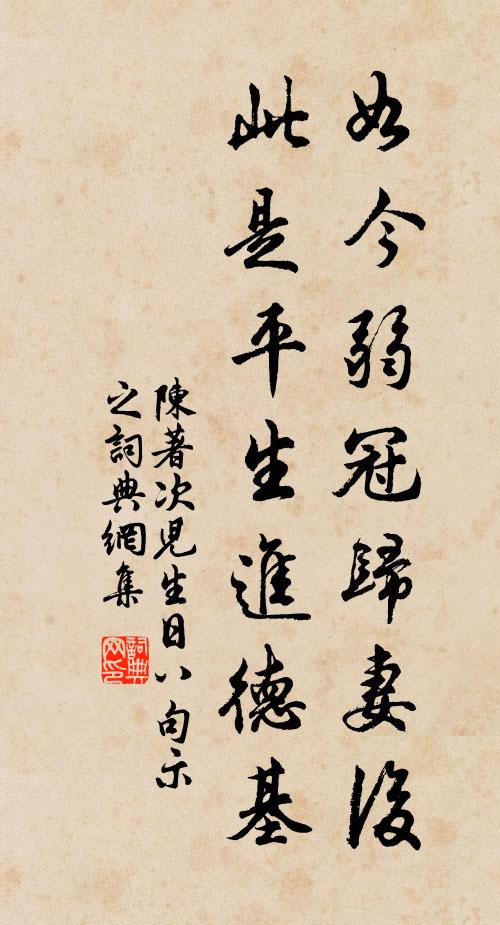 如今弱冠歸妻後
此是平生進德基
陳著次児生日八句示
之詞典網集
詞典网印